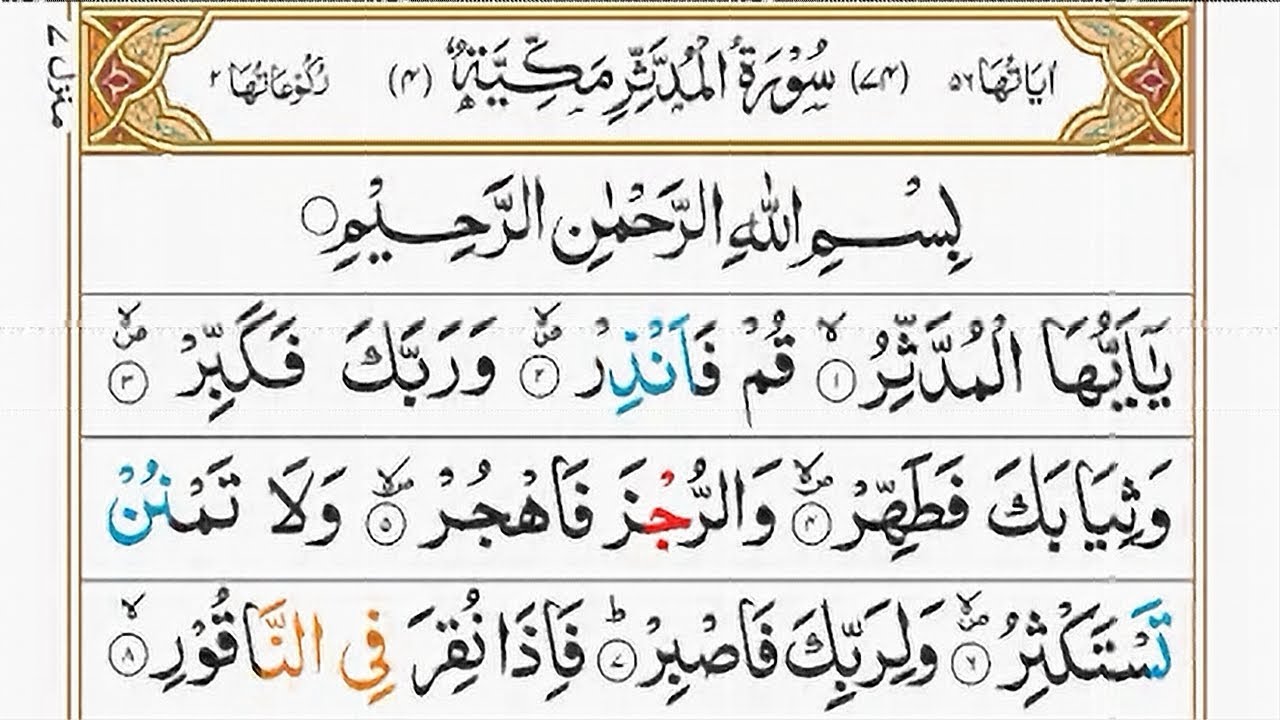 اٰيَاتُهَا ٥٦ (٧٤) سُوْرَةُ الْمُدَّثِّرِ مَكِّيَّةٌ (٤) رُكُوْعَاتُهَا ٢
منزل ٧
بِسْمِ اللّٰهِ الرَّحْمٰنِ الرَّحِيْمِ
يٰۤاَيُّهَا الْمُدَّثِّرُ ۙ﴿۱﴾ قُمْ فَاَنْذِرْ ۪ۙ﴿۲﴾ وَرَبَّكَ فَكَبِّرْ ۪ۙ﴿۳﴾
وَثِيَابَكَ فَطَهِّرْ ۪ۙ﴿۴﴾ وَالرُّجْزَ فَاهْجُرْ ۪ۙ﴿۵﴾ وَلَا تَمْنُنْ
تَسْتَكْثِرُ ۪ۙ﴿۶﴾ وَلِرَبِّكَ فَاصْبِرْ ؕ﴿۷﴾ فَاِذَا نُقِرَ فِي النَّاقُوْرِ ۙ﴿۸﴾